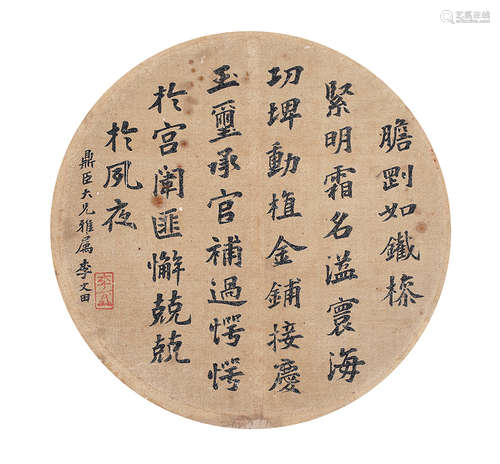 膽剛如鐵榛
緊明霜名溢寰海
切埤動植金鋪接慶
玉璽承官補過愕愕
於宫闈匪懈兢兢
於夙夜
鼎臣大兄雅属 李文田